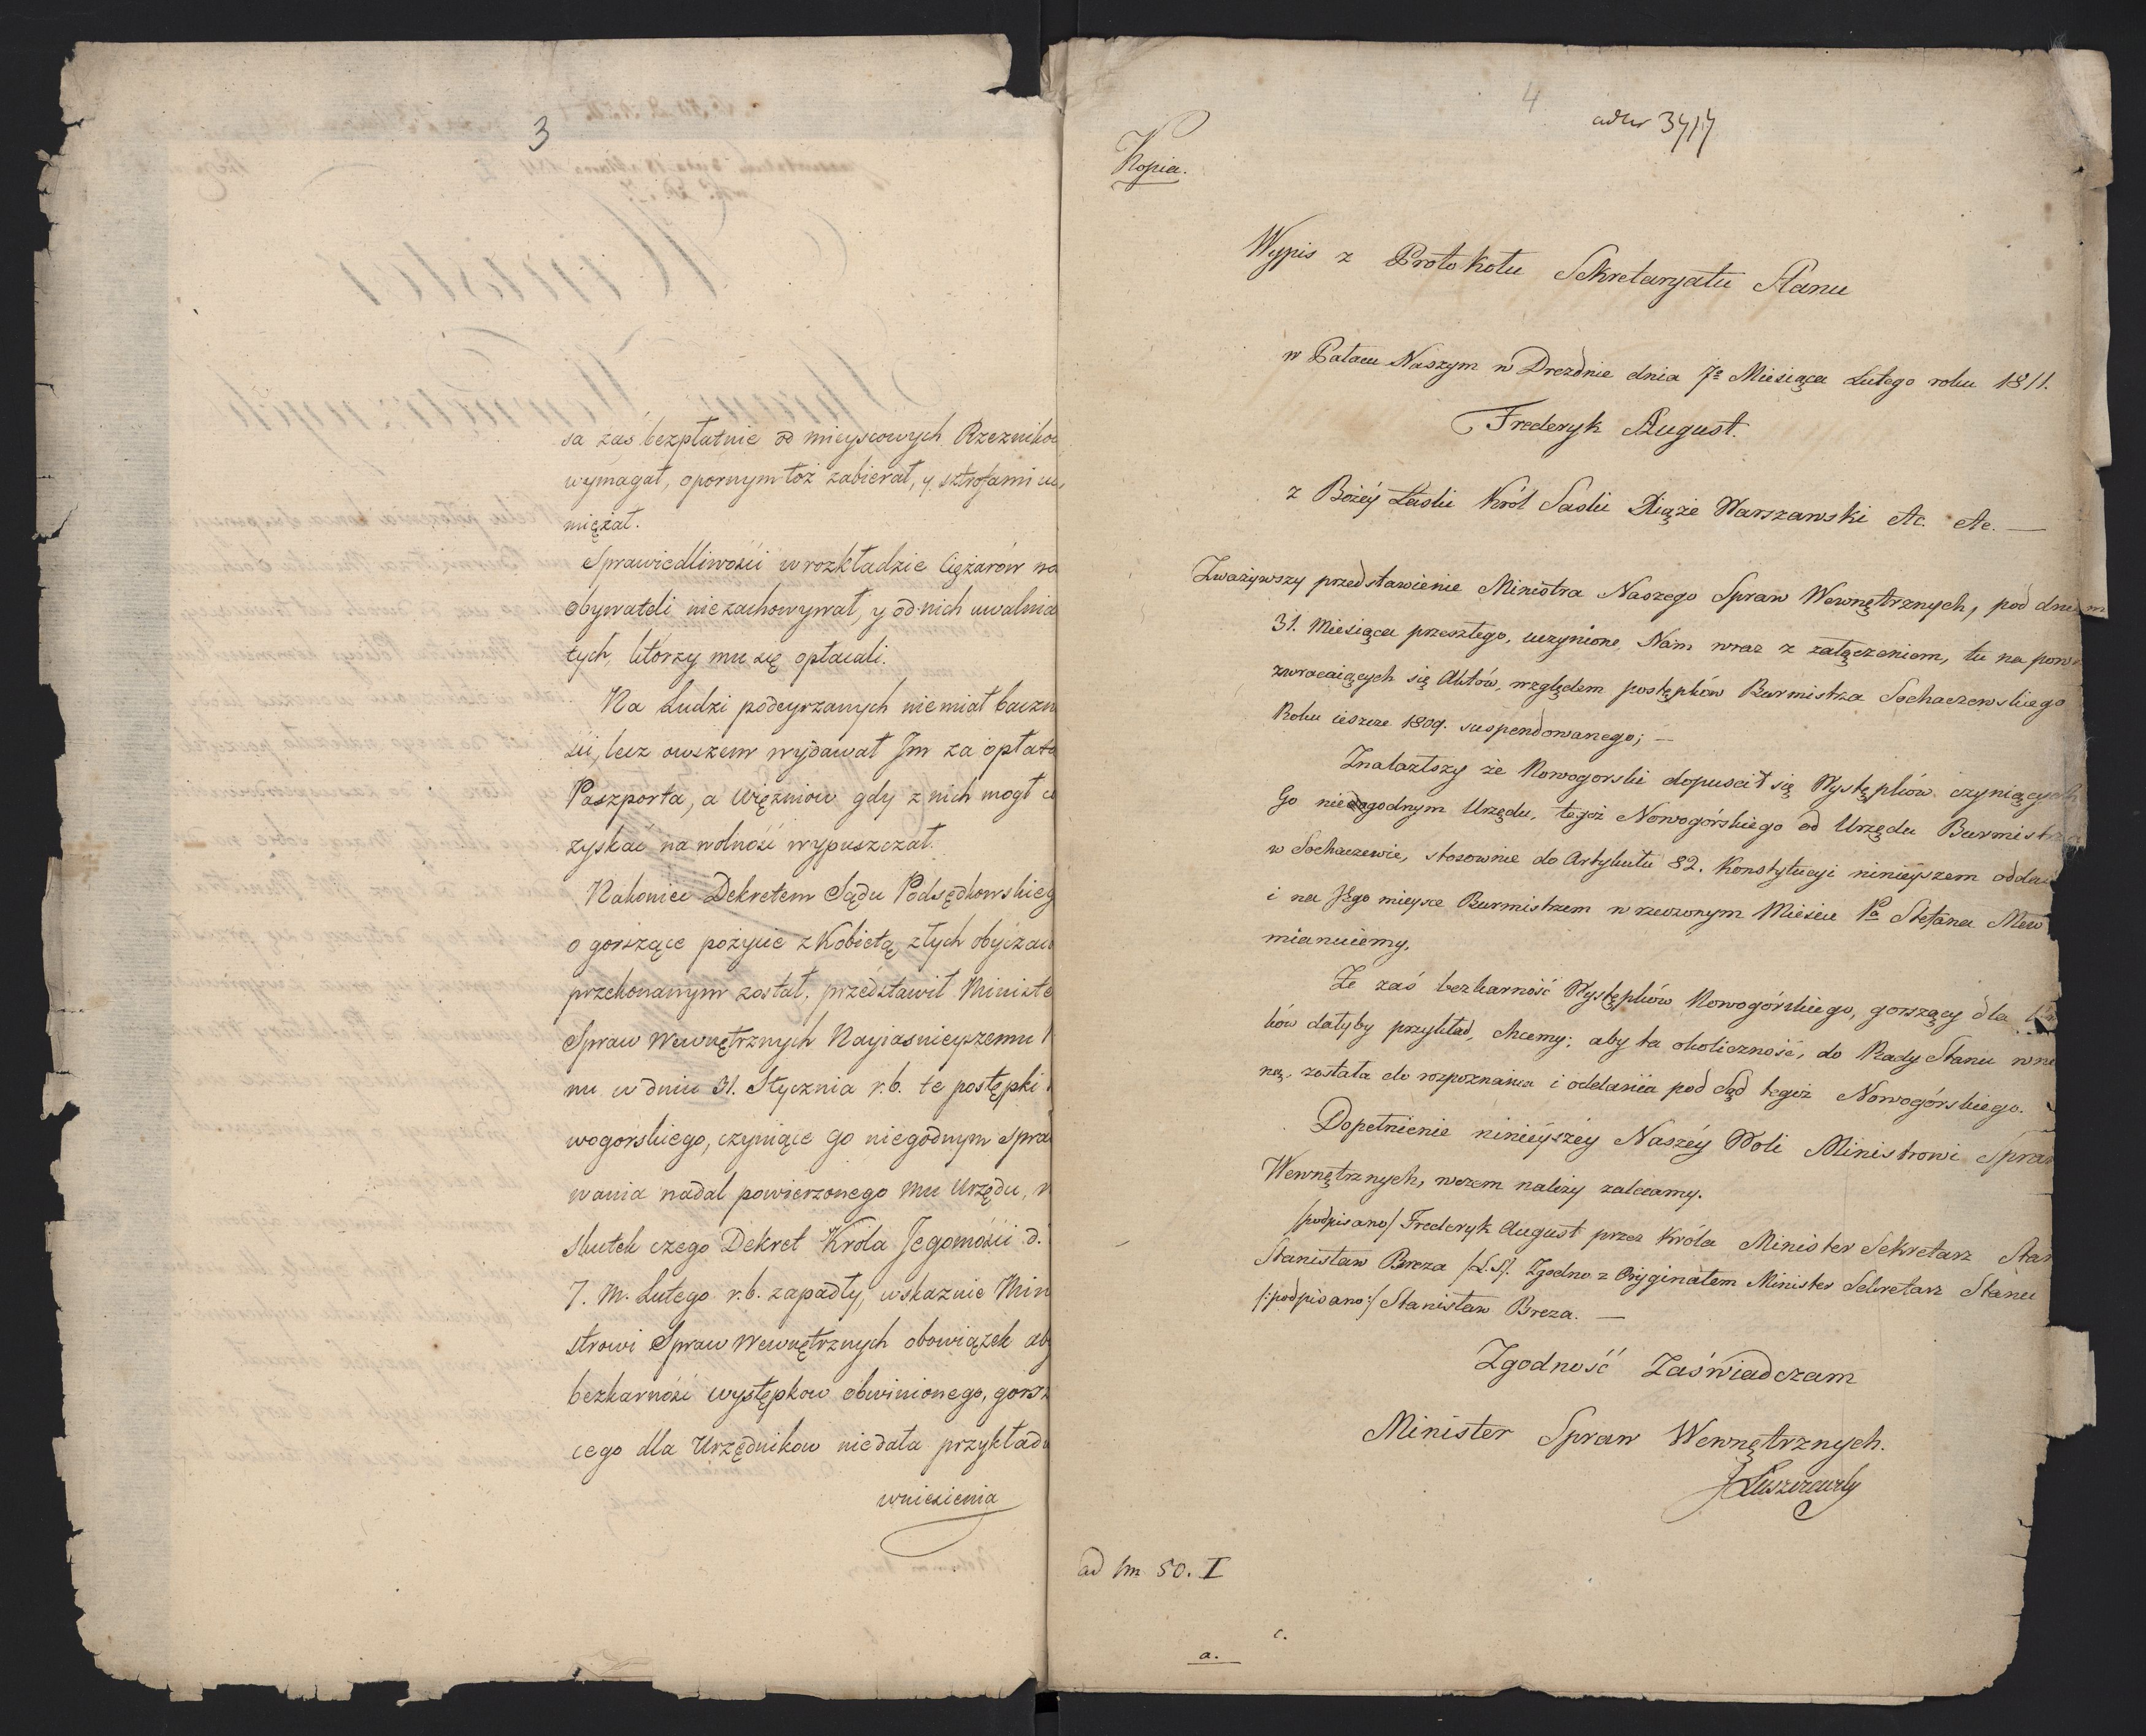 3
sa zaś bezpłatnie od mieyscowych Rzezniko
wymagał, opornym toż zabierał, y sztrofami cie,
mięzał.
Sprawiedliwości w rozkładzie Ciężarów na
obywateli niezachowywał, y od nich uwalniał
tych, którzy mu się opłacali.
Na Ludzi podeyrzanych niemiał baczno
ści, lecz owszem wydawał Im za opłatą
Paszporta, a więźniow gdy z nich mogł co
zyskać na wolność wypuszczał.
Nakoniec Dekretem Sądu Podsędkowskieg
o gorszące pożycie z Kobietą złych obyczaio
przekonanym został, przedstawił Ministe
Spraw Wewnętrznych Nayiasnieyszemu
nu w dniu 31. Stycznia r.b. te postępki
wogorskiego, czyniące go niegodnym spra
wania nadal powierzonego mu Urzędu, w
skutek czego Dekret Króla Jegomości d.
7. M. Lutego r.b. zapadły, wskazuie Min
strowi Spraw Wewnętrznych obowiązek aby
bezkarność występkow obwinionego, gorsz
cego dla Urzędnikow niedała przykładu
wniesienia
4
ad Nr 3717
Kopia.
Wypis z Protokołu Sekretaryatu Stanu
w Pałacu Naszym w Dreźnie dnia 7º Miesiąca Lutego roku 1811.
Frederyk August.
z Bożéy Łaski Król Saski Xiąże Warszawski etc. etc. —
Zważywszy przedstawienie Ministra Naszego Spraw Wewnętrznych, pod dniem
31. Miesiąca przeszłego, uczynione, Nam wraz z załączeniem, tu na pow
zwracaiących się Aktów, względem postępków Burmistrza Sochaczewskiego
Roku ieszcze 1809. suspendowanego; —
Znalazłszy że Nowogorski dopuścił się Występków czyniących
Go niegodnym Urzędu, tegoż Nowogórskiego od Urzędu Burmistrza
w Sochaczewie, stosownie do Artykułu 82. Konstytucyi ninieyszem oddala
i na Jego mieysce Burmistrzem w rzeczonym Mieście Pa Stefana Mew
mianuiemy,
Że zaś bezkarność Występków Nowogórskiego, gorszący dla
ków dałyby przykład, chcemy: aby ta okoliczność, do Rady Stanu wnie
ną, została do rozpoznania i oddania pod Sąd tegoż Nowogórskiego.
Dopełnienie ninieyszéy Naszéy Woli Ministrowi Spraw
Wewnętrznych, wczem należy zalecamy.
/podpisano/ Frederyk August przez Króla Minister Sekretarz Stan
Stanisław Breza /L.S/. Zgodno z Oryginałem Minister Sekretarz Stanu
/:podpisano:/ Stanisław Breza. —
Zgodność Zaświadczam
Minister Spraw Wewnętrznych.
J Łuszczewsky
ad Nm 50. I
c.
a.